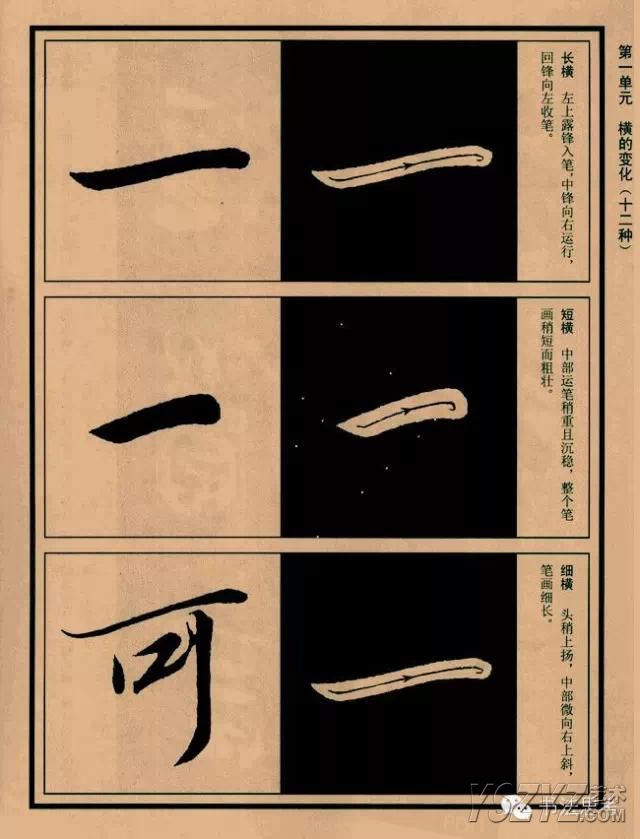 第一单元 横的变化（十二种）
长横 左上露锋入笔，中锋向右运行，
回锋向左收笔。
一
短横 中部运笔稍重且沉稳，整个笔
画稍短而粗壮。
一
细横 头稍上扬，中部微向右上斜，
笔画细长。
可
YSZYZ艺术